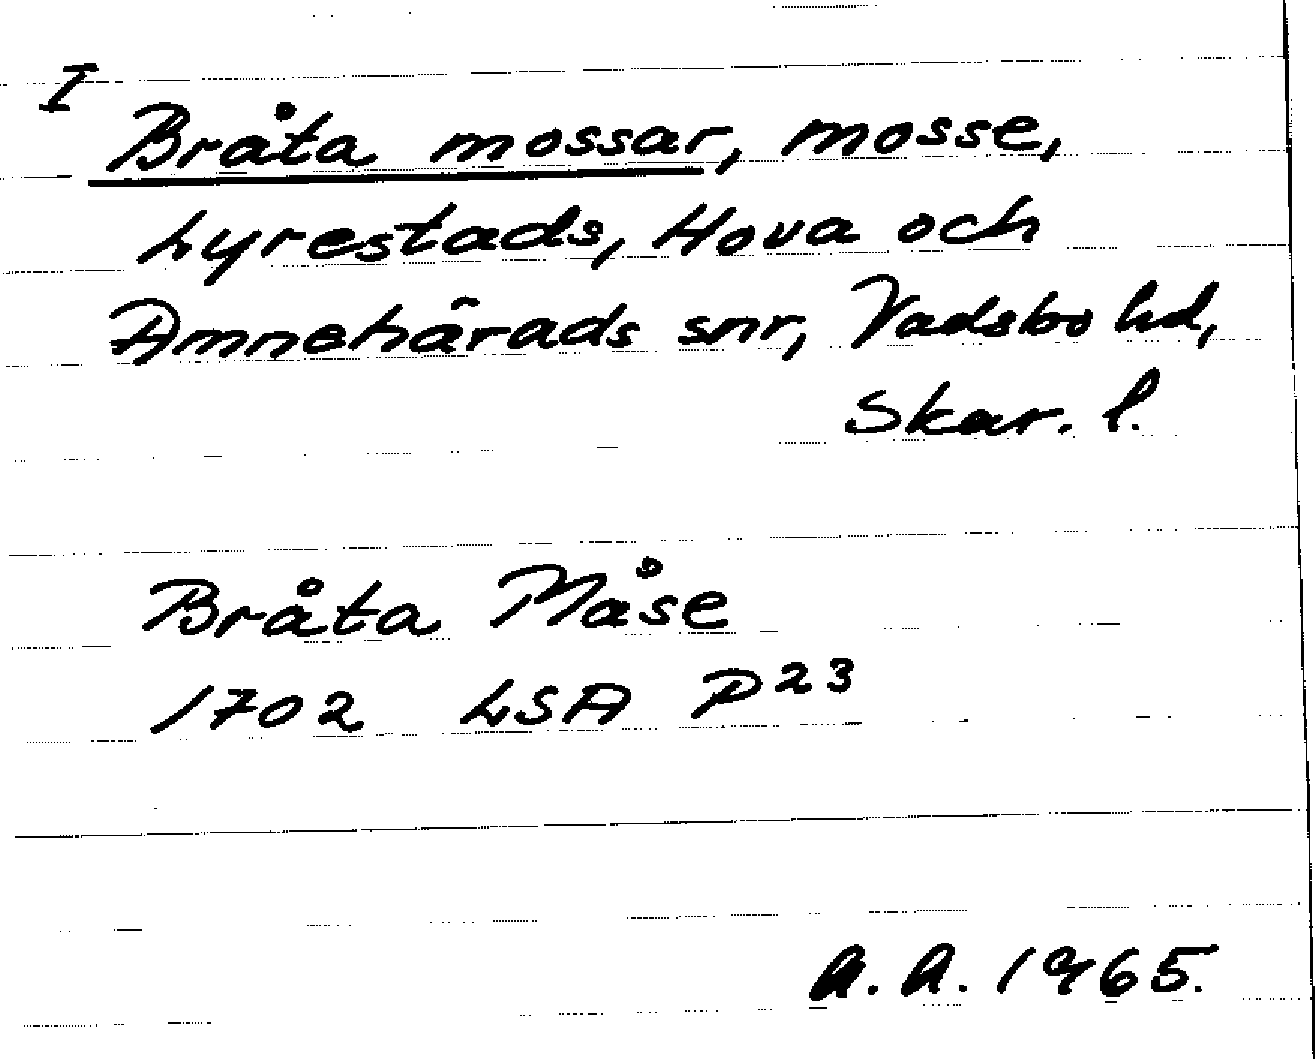 I
Bråta mossar, mosse,
Lyrestads, Hova och
Amnehärads snr, Vadsbo hd,
Skar. l.
Bråta Måse
1702 LSA P23
A. A. 1965.